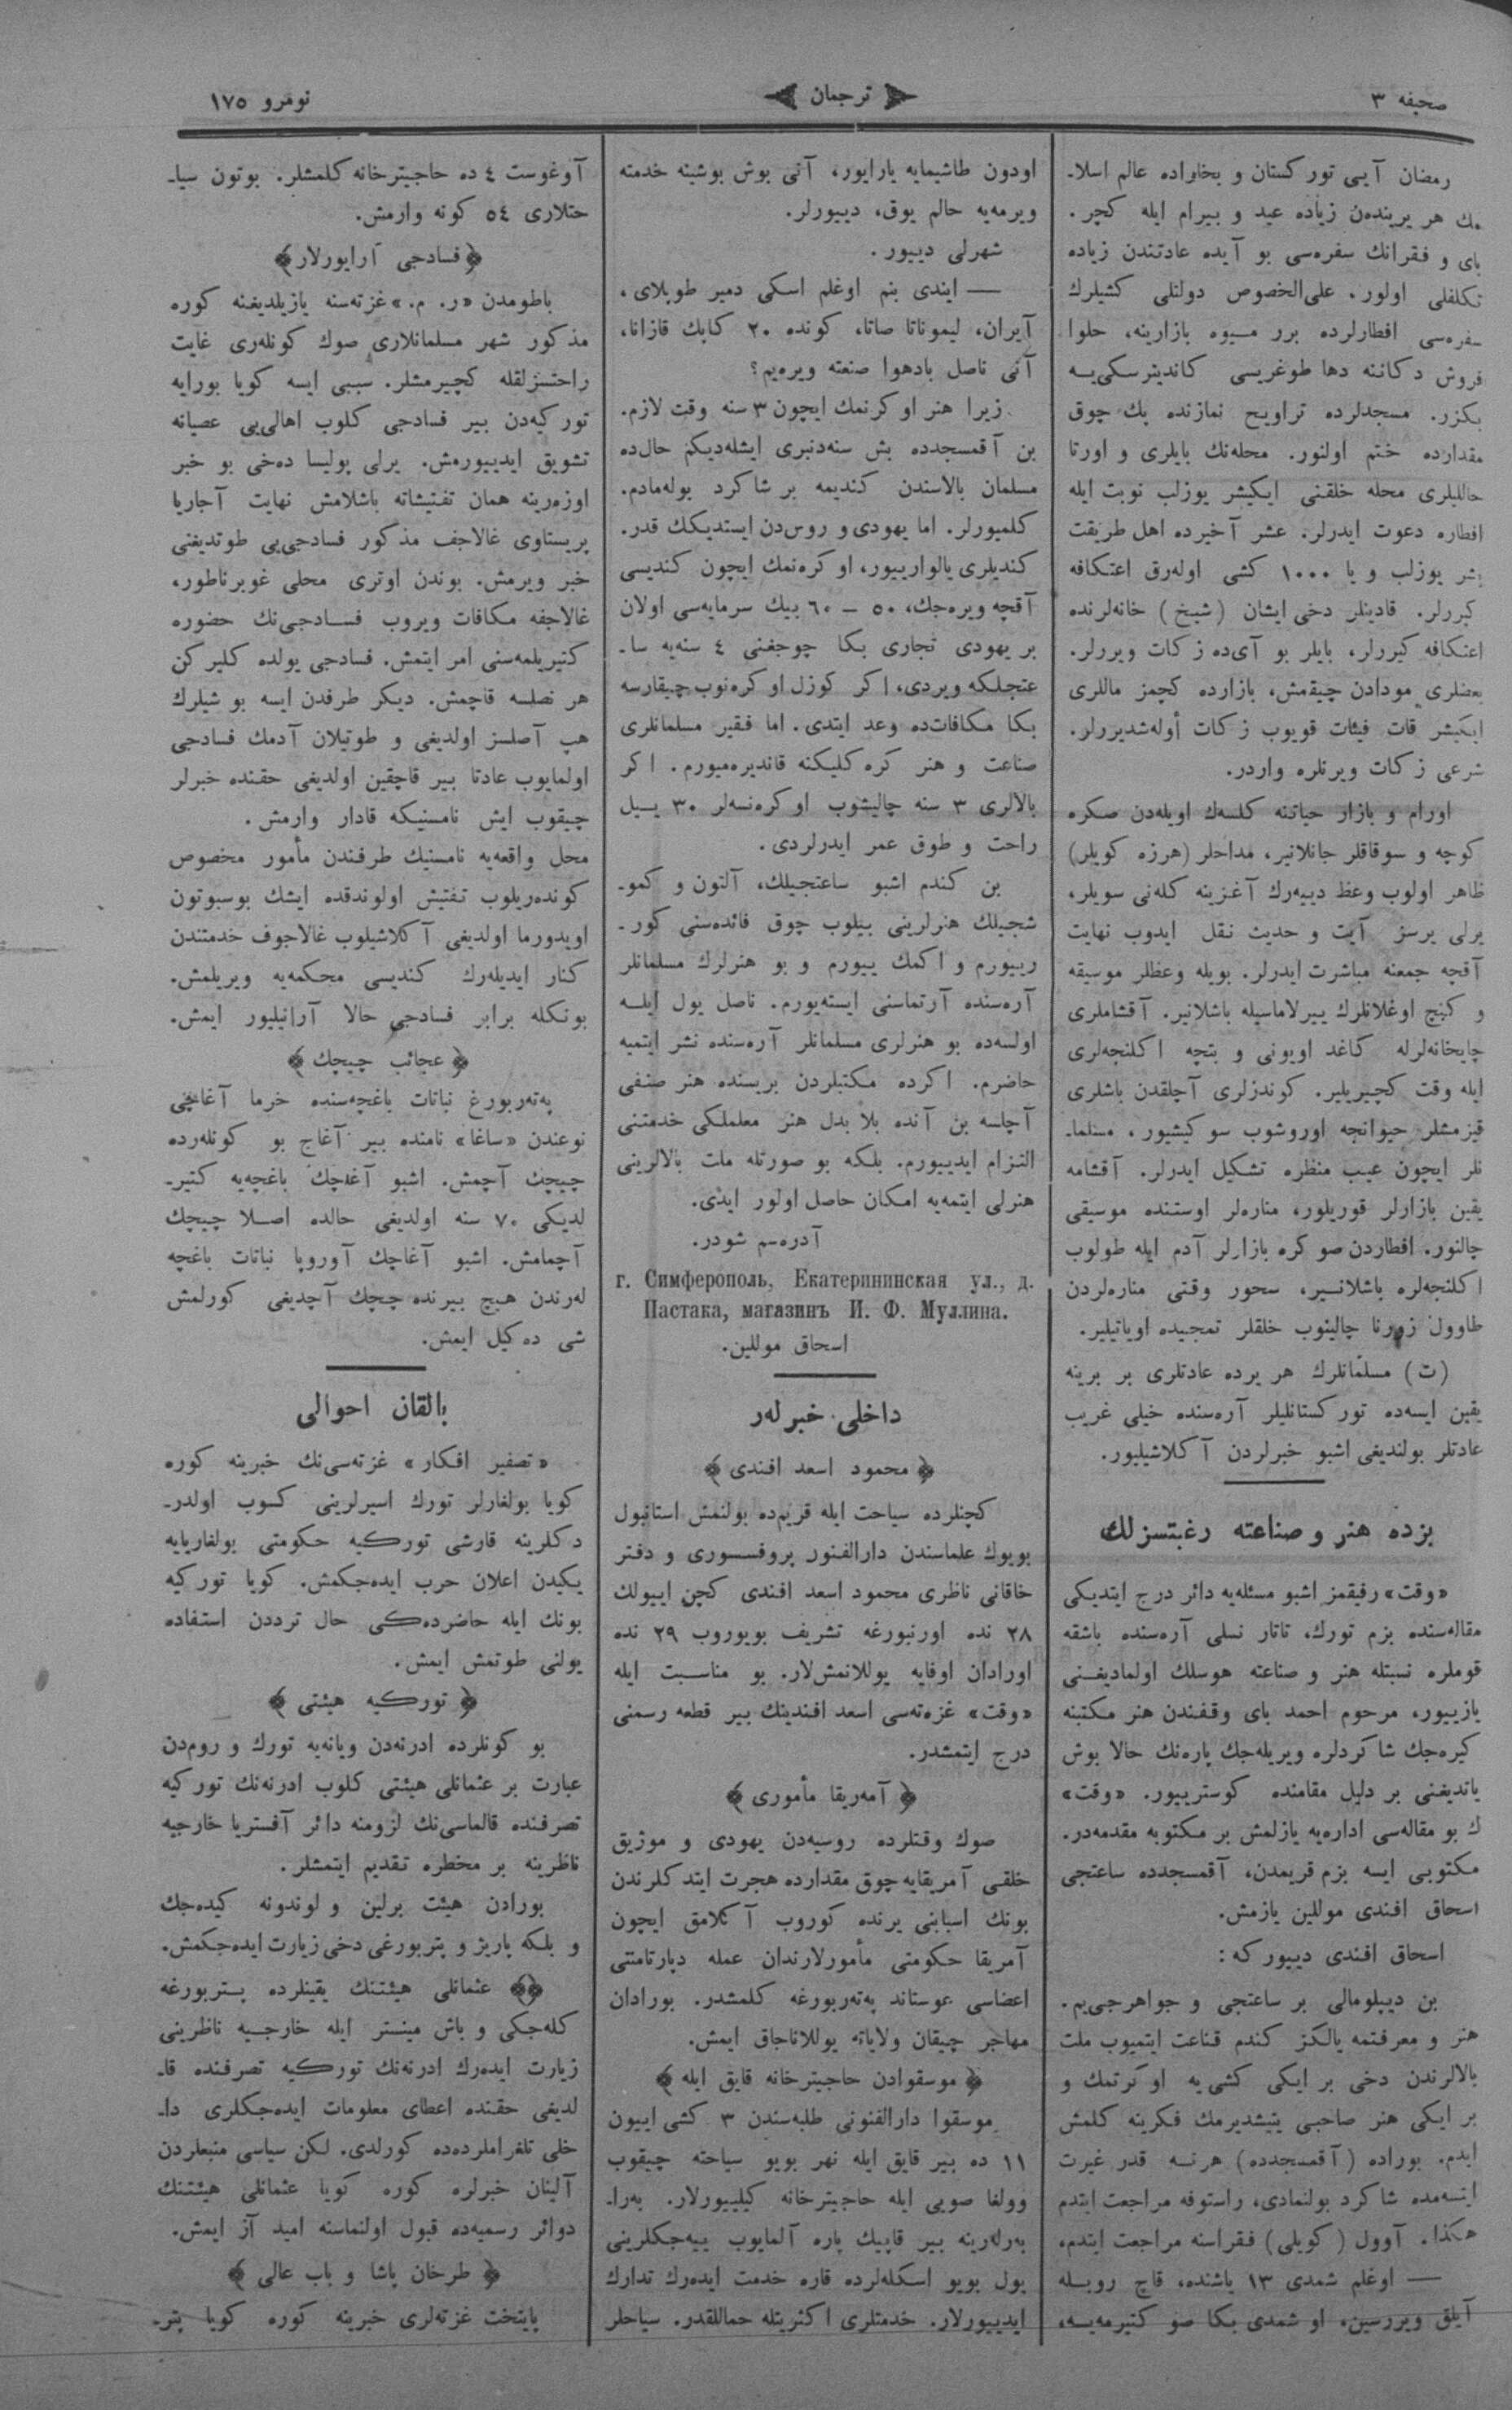 صحیفه ٣
ترجمان
نومرو ١٧٥
رمضان آیی تورکستان و بخاراده عالم اسلا-
مك هر یرینده‌ن زیاده عید و بیرام ایله کچر.
بای و فقرانك سفره‌سی بو آیده عادتندن زیاده
تکلفلی اولور. علی‌الخصوص دولتلی کشیلرك
سفره‌سی افطارلرده برر میوه بازارینه، حلوا
فروش دکاننه دها طوغریسی کاندیترسکی‌یه
بکزر. مسجدلرده تراویح نمازنده پك چوق
مقدارده ختم اولنور. محله‌نك بایلری و اورتا
حاللیلری محله خلقنی ایکیشر یوزلب نوبت ایله
افطاره دعوت ایدرلر. عشر آخیرده اهل طریقت
بشر یوزلب و یا ١٠٠٠ کشی اوله‌رق اعتکافه
کیررلر. قادینلر دخی ایشان (شیخ) خانه‌لرنده
اعتکافه کیررلر، بایلر بو آی‌ده زکات ویررلر.
بعضلری مودادن چیقمش، بازارده کچمز ماللری
ایکیشر قات فیئات قویوب زکات أوله‌شدیررلر.
شرعی زکات ویرنلره واردر.
اورام و بازار حیاتنه کلسه‌ك اویله‌دن صکره
کوچه و سوقاقلر جانلانیر، مداحلر (هرزه کویلر)
ظاهر اولوب وعظ دییه‌رك آغزینه کله‌نی سویلر،
یرلی یرسز آیت و حدیث نقل ایدوب نهایت
آقچه جمعنه مباشرت ایدرلر. بویله وعظلر موسیقه
و کنج اوغلانلرك ییرلاماسیله باشلانیر. آقشاملری
چایخانه‌لرله کاغد اویونی و بتچه اکلنجه‌لری
ایله وقت کچیریلیر. کوندزلری آچلقدن باشلری
قیزمشلر حیوانچه اوروشوب سوکیشیور، مسلما-
نلر ایچون عیب منظره تشکیل ایدرلر. آقشامه
یقین بازارلر قوریلور، مناره‌لر اوستنده موسیقی
چالنور. افطاردن صوکره بازارلر آدم ایله طولوب
اکلنجه‌لره باشلانیر، سحور وقتی مناره‌لردن
طاوول زورنا چالینوب خلقلر تمجیده اویاتیلیر.
(ت) مسلمانلرك هر یرده عادتلری بر برینه
یقین ایسه‌ده تورکستانلیلر آره‌سنده خیلی غریب
عادتلر بولندیغی اشبو خبرلردن آکلاشیلیور.
بزده هنر و صناعته رغبتسزلك
«وقت» رفیقمز اشبو مسئله‌یه دائر درج ایتدیکی
مقاله‌سنده بزم تورك، تاتار نسلی آره‌سنده باشقه
قوملره نسبتله هنر و صناعته هوسلك اولمادیغنی
یازییور، مرحوم احمد بای وقفندن هنر مکتبنه
کیره‌جك شاکردلره ویریله‌جك پاره‌نك حالا بوش
یاتدیغنی بر دلیل مقامنده کوسترییور. «وقت»
ك بو مقاله‌سی اداره‌یه یازلمش بر مکتوبه مقدمه‌در.
مکتوبی ایسه بزم قریمدن، آقمسجدده ساعتجی
اسحاق افندی موللین یازمش.
اسحاق افندی دییور که:
بن دیپلومالی بر ساعتجی و جواهرجی‌یم.
هنر و معرفتمه یالکز کندم قناعت ایتمیوب ملت
بالالرندن دخی بر ایکی کشی‌یه اوکرتمك و
بر ایکی هنر صاحبی یتیشدیرمك فکرینه کلمش
ایدم. بوراده (آقمسجدده) هرنه قدر غیرت
ایتسه‌مده شاکرد بولنمادی، راستوفه مراجعت ایتدم
هکذا. آوول (کویلی) فقراسنه مراجعت ایتدم،
— اوغلم شمدی ١٣ یاشنده، قاچ روبله
آیلق ویررسین، او شمدی بکا صو کتیرمه‌یه،
اودون طاشیمایه یارایور، آنی بوش بوشینه خدمته
ویرمه‌یه حالم یوق، دییورلر.
شهرلی دییور.
— ایندی بنم اوغلم اسکی دمیر طوپلای،
آیران، لیموناتا صاتا، کونده ٢٠ کاپك قازانا،
آنی ناصل بادهوا صنعته ویره‌یم؟
زیرا هنر اوکرنمك ایچون ٣ سنه وقت لازم.
بن آقمسجدده بش سنه‌دنبری ایشله‌دیکم حال‌ده
مسلمان بالاسندن کندیمه بر شاکرد بوله‌مادم.
کلمیورلر. اما یهودی و روس‌دن ایستدیکك قدر.
کندیلری یالوارییور، اوکره‌نمك ایچون کندیسی
آقچه ویره‌جك، ٥٠ – ٦٠ بیك سرمایه‌سی اولان
بر یهودی تجاری بکا چوجغنی ٤ سنه‌یه سا-
عتجلکه ویردی، اکر کوزل اوکره‌نوب چیقارسه
بکا مکافات‌ده وعد ایتدی. اما فقیر مسلمانلری
صناعت و هنر کره‌کلیکنه قاندیره‌میورم. اکر
بالالری ٣ سنه چالیشوب اوکره‌نسه‌لر ٣٠ ییل
راحت و طوق عمر ایدرلردی.
بن کندم اشبو ساعتجیلك، آلتون و کمو-
شجیلك هنرلرینی بیلوب چوق فائده‌سنی کور-
رییورم و اکمك ییورم و بو هنرلرك مسلمانلر
آره‌سنده آرتماسنی ایسته‌یورم. ناصل یول ایله
اولسه‌ده بو هنرلری مسلمانلر آره‌سنده نشر ایتمیه
حاضرم. اکرده مکتبلردن بریسنده هنر صنفی
آچلسه بن آنده بلا بدل هنر معلملکی خدمتنی
التزام ایدییورم. بلکه بو صورتله ملت بالالرینی
هنرلی ایتمه‌یه امکان حاصل اولور ایدی.
آدره‌سم شودر.
г. Симферополь, Екатерининская ул., д.
Пастака, магазинъ И. Ф. Муллина.
اسحاق موللین.
داخلی خبرلەر
﴿محمود اسعد افندی﴾
کچنلرده سیاحت ایله قریم‌ده بولنمش استانبول
بویوك علماسندن دارالفنون پروفسوری و دفتر
خاقانی ناظری محمود اسعد افندی کچن اییولك
٢٨ نده اورنبورغه تشریف بویوروب ٢٩ نده
اورادان اوفایه یوللانمش‌لار. بو مناسبت ایله
«وقت» غزه‌ته‌سی اسعد افندینك بیر قطعه رسمنی
درج ایتمشدر.
﴿آمه‌ریقا مأموری﴾
صوك وقتلرده روسیه‌دن یهودی و موژیق
خلقی آمریقایه چوق مقدارده هجرت ایتدکلرندن
بونك اسبابنی یرنده کوروب آکلامق ایچون
آمریقا حکومتی مأمورلارندان عمله دپارتامنتی
اعضاسی عوستاند په‌ته‌ربورغه کلمشدر. بورادان
مهاجر چیقان ولایاته یوللاناجاق ایمش.
﴿موسقوادن حاجیترخانه قایق ایله﴾
موسقوا دارالفنونی طلبه‌سندن ٣ کشی اییون
١١ ده بیر قایق ایله نهر بویو سیاحته چیقوب
وولغا صویی ایله حاجیترخانه کیلییورلار. به‌را-
به‌رله‌رینه بیر قاپیك پاره آلمایوب ییه‌جکلرینی
یول بویو اسکله‌لرده قاره خدمت ایده‌رك تدارك
ایدییورلار. خدمتلری اکثریتله حماللقدر. سیاحلر
آوغوست ٤ ده حاجیترخانه کلمشلر. بوتون سیا-
حتلاری ٥٤ کونه وارمش.
﴿فسادجی آرایورلار﴾
باطومدن «ر. م.» غزته‌سنه یازیلدیغنه کوره
مذکور شهر مسلمانلاری صوك کونله‌ری غایت
راحتسزلقله کچیرمشلر. سببی ایسه کویا بورایه
تورکیه‌دن بیر فسادجی کلوب اهالی‌یی عصیانه
تشویق ایدییورمش. یرلی پولیسا ده‌خی بو خبر
اوزه‌رینه همان تفتیشاته باشلامش نهایت آجاریا
پریستاوی غالاجف مذکور فسادجی‌یی طوتدیغنی
خبر ویرمش. بوندن اوتری محلی غوبرناطور،
غالاجفه مکافات ویروب فسادجی‌نك حضوره
کتیریلمه‌سنی امر ایتمش. فسادجی یولده کلیرکن
هر نصلسه قاچمش. دیکر طرفدن ایسه بو شیلرك
هپ آصلسز اولدیغی و طوتیلان آدمك فسادجی
اولمایوب عادتا بیر قاچقین اولدیغی حقنده خبرلر
چیقوب ایش نامسنیکه قادار وارمش.
محل واقعه‌یه نامسنیك طرفندن مأمور مخصوص
کونده‌ریلوب تفتیش اولوندقده ایشك بوسبوتون
اویدورما اولدیغی آکلاشیلوب غالاجوف خدمتندن
کنار ایدیله‌رك کندیسی محکمه‌یه ویریلمش.
بونکله برابر فسادجی حالا آرانیلیور ایمش.
﴿عجائب چیچك﴾
په‌ته‌ربورغ نباتات باغچه‌سنده خرما آغاجی
نوعندن «ساغا» نامنده بیر آغاج بو کونله‌رده
چیچك آچمش. اشبو آغه‌چك باغچه‌یه کتیر-
لدیکی ٧٠ سنه اولدیغی حالده اصلا چیچك
آچمامش. اشبو آغاچك آوروپا نباتات باغچه
له‌رندن هیچ بیرنده چچك آچدیغی کورلمش
شی ده‌کیل ایمش.
بالقان احوالی
«تصفیر افکار» غزته‌سی‌نك خبرینه کوره
کویا بولغارلر تورك اسیرلرینی کسوب اولدر-
دکلرینه قارشی تورکیه حکومتی بولغاریایه
یکیدن اعلان حرب ایده‌جکمش. کویا تورکیه
بونك ایله حاضرده‌کی حال ترددن استفاده
یولنی طوتمش ایمش.
﴿تورکیه هیئتی﴾
بو کونلرده ادرنه‌دن ویانه‌یه تورك و روم‌دن
عبارت بر عثمانلی هیئتی کلوب ادرنه‌نك تورکیه
تصرفنده قالماسی‌نك لزومنه دائر آفستریا خارجیه
ناظرینه بر مخطره تقدیم ایتمشلر.
بورادن هیئت برلین و لوندونه کیده‌جك
و بلکه پاریژ و پتربورغی دخی زیارت ایده‌جکمش.
﴿﴾ عثمانلی هیئتنك یقینلرده پتربورغه
کله‌جکی و باش مینستر ایله خارجیه ناظرینی
زیارت ایده‌رك ادرنه‌نك تورکیه تصرفنده قا-
لدیغی حقنده اعطای معلومات ایده‌جکلری دا-
خلی تلغراملرده‌ده کورلدی. لکن سیاسی منبعلردن
آلینان خبرلره کوره کویا عثمانلی هیئتنك
دوائر رسمیه‌ده قبول اولنماسنه امید آز ایمش.
﴿طرخان پاشا و باب عالی﴾
پایتخت غزته‌لری خبرینه کوره کویا پتر-